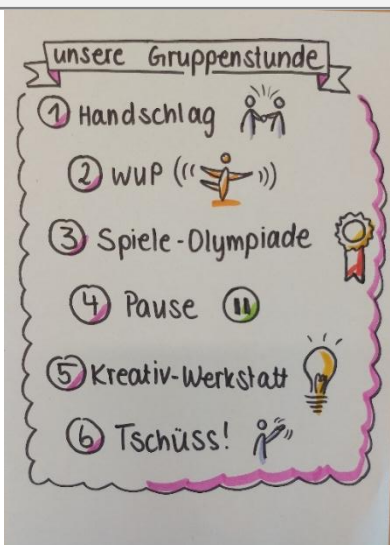 unsere Gruppenstunde
1 Handschlag
2 WUP
3 Spiele-Olympiade
4 Pause
5 Kreativ-Werkstatt
6 Tschüss!